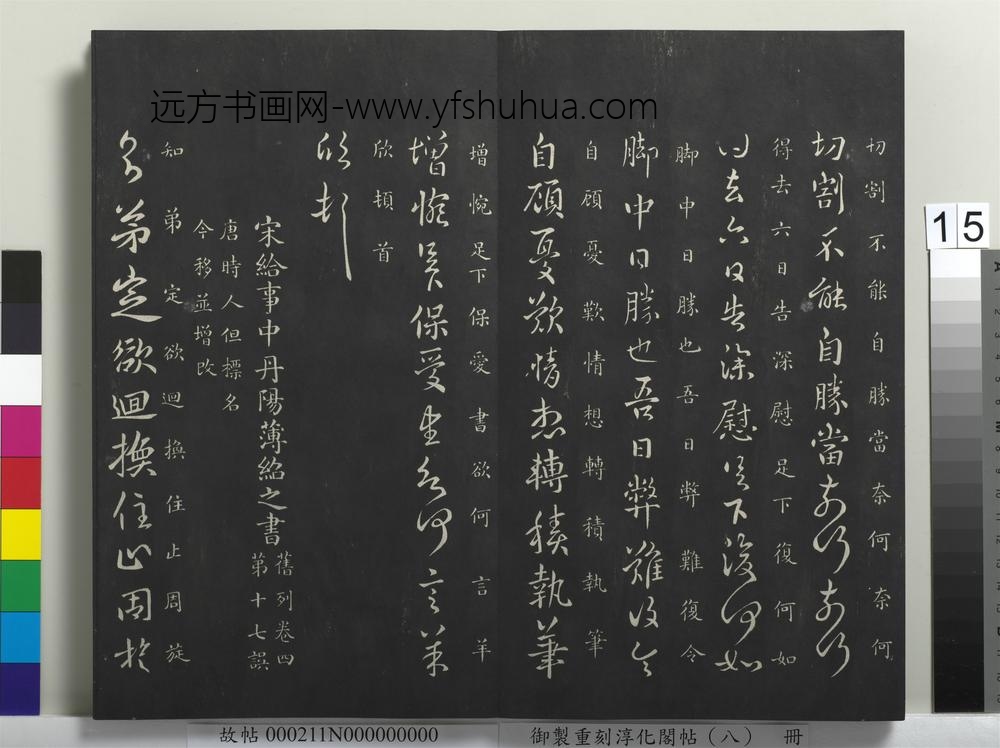 远方书画网-www.yfshuhua.com
切割不能自勝當奈何奈何
切割不能自勝當奈何奈何
得去六日告深慰足下復何如
得去六日告深慰足下復何如
脚中日勝也吾日弊難復令
脚中日勝也吾日弊難復令
自顧憂歎情想轉積執筆
自顧憂歎情想轉積執筆
增惋足下保愛書欲何言羊
增惋足下保愛書欲何言羊
欣頓首
欣頓首
宋給事中丹陽薄紹之書
舊列卷四
第十七誤
唐時人但標名
今移並增改
知弟定欲迴換住止周旋
知弟定欲迴換住止周旋
15
故帖 000211N000000000
御製重刻淳化閣帖（八） 冊